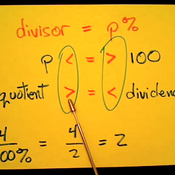 divisor = p%
p < > 100
quotient > = < dividend
4/00% = 4/2 = 2